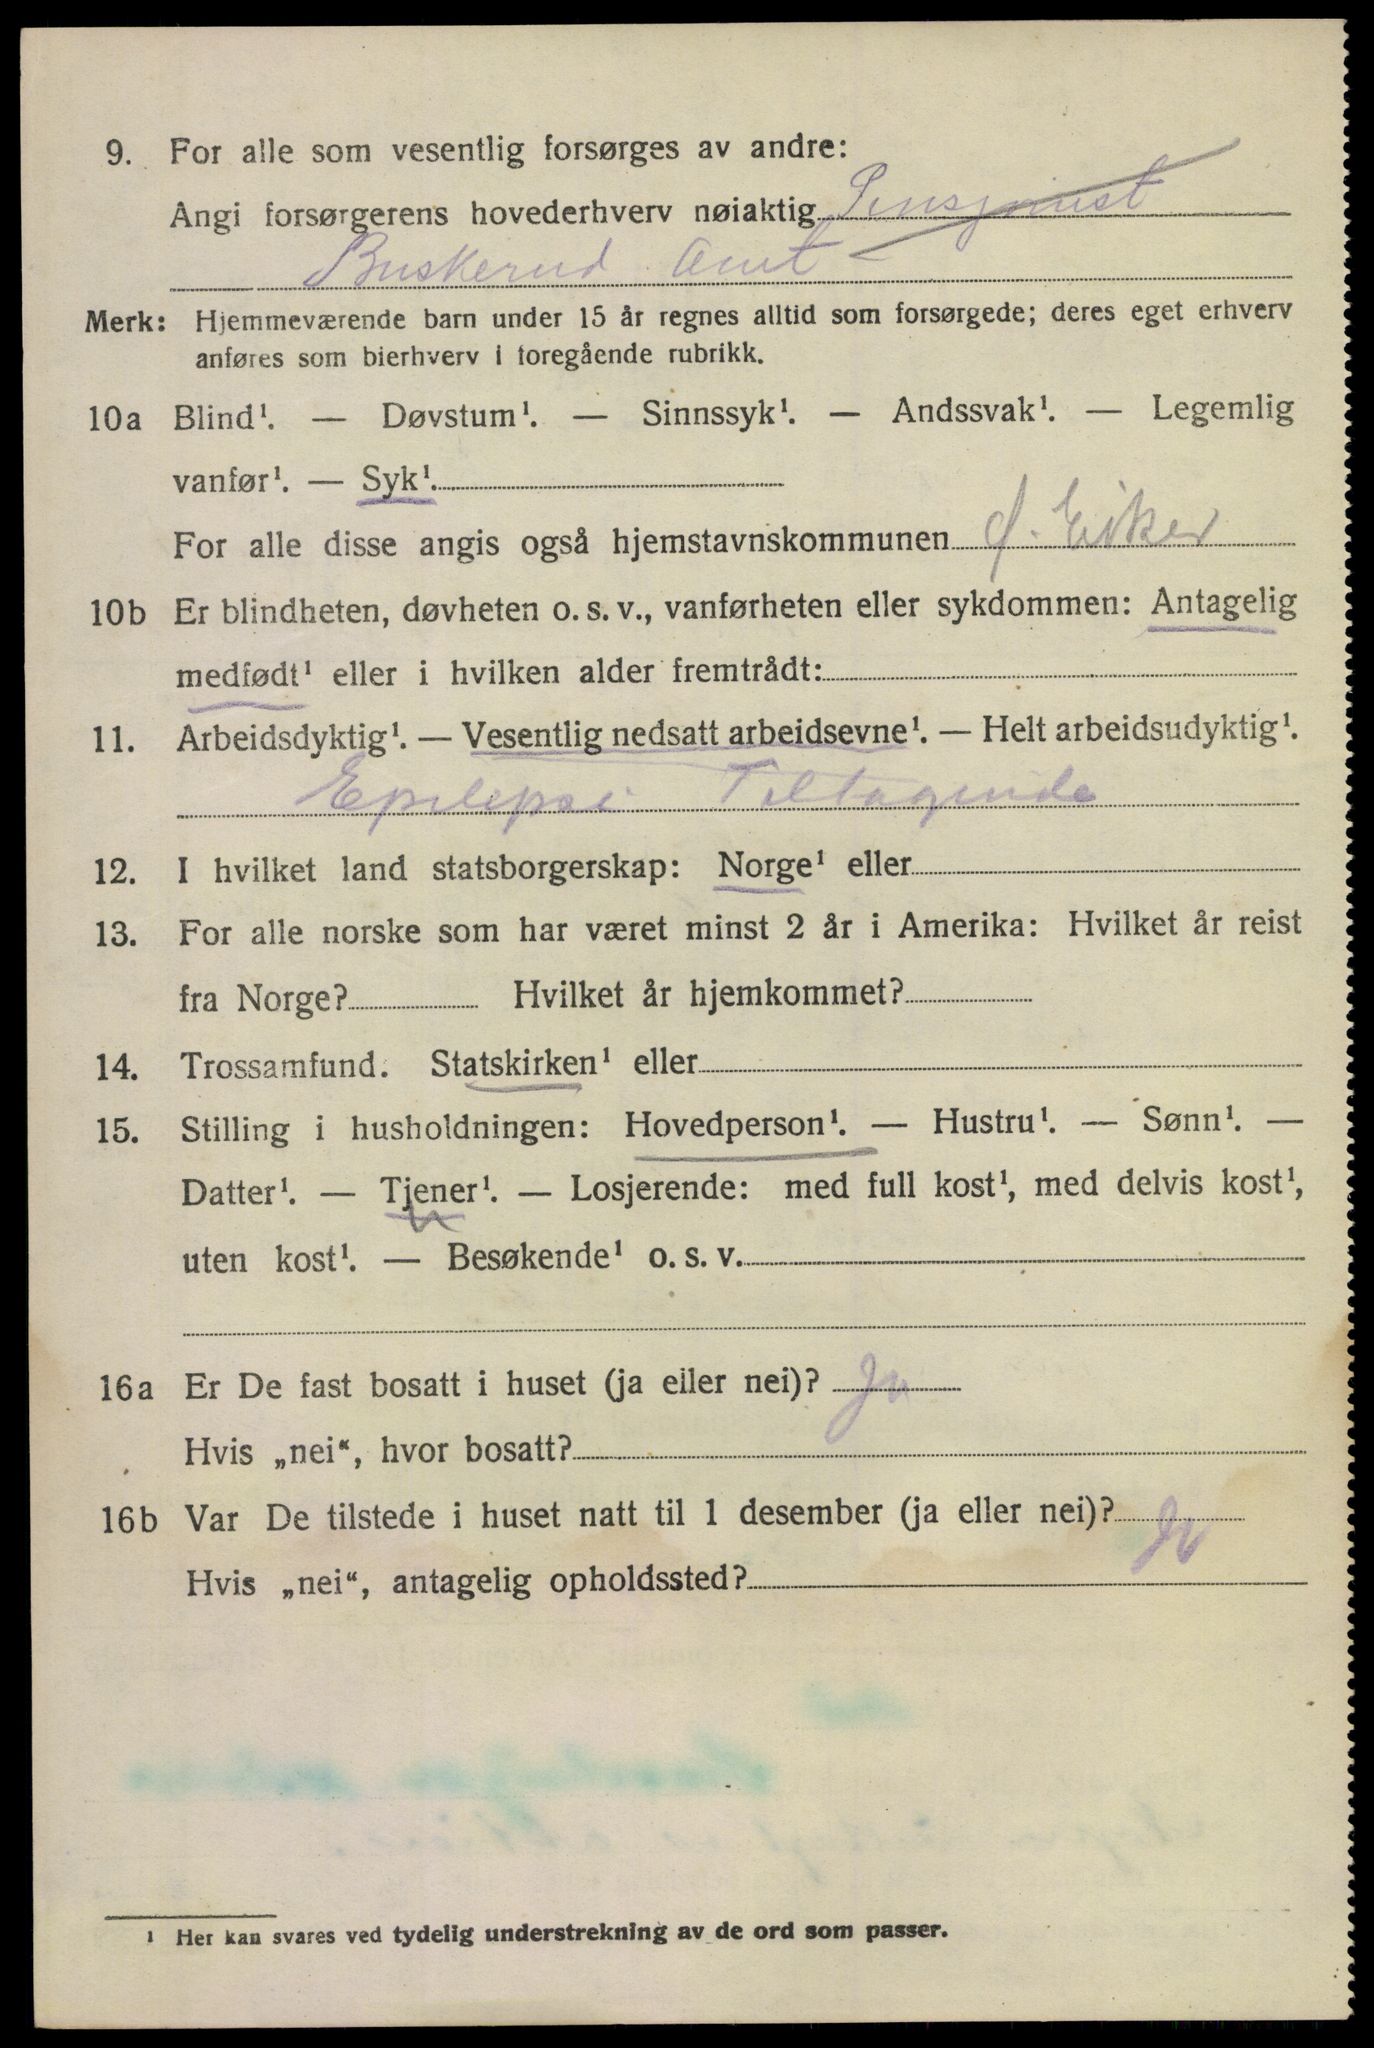 9. For alle som vesentlig forsørges av andre:
Angi forsørgerens hovederhverv nøiaktig Pensjonist
Buskerud Amt
Merk: Hjemmeværende barn under 15 år regnes alltid som forsørgede; deres eget erhverv
anføres som bierhverv i foregående rubrikk.
10a Blind¹. — Døvstum¹. — Sinnssyk¹. — Andssvak¹. — Legemlig
vanfør¹. — Syk¹.
For alle disse angis også hjemstavnskommunen Ø. Eiker
10b Er blindheten, døvheten o. s. v., vanførheten eller sykdommen: Antagelig
medfødt¹ eller i hvilken alder fremtrådt:
11. Arbeidsdyktig¹. — Vesentlig nedsatt arbeidsevne¹. — Helt arbeidsudyktig¹.
Epilepsi Tiltagende
12. I hvilket land statsborgerskap: Norge¹ eller
13. For alle norske som har været minst 2 år i Amerika: Hvilket år reist
fra Norge? Hvilket år hjemkommet?
14. Trossamfund. Statskirken¹ eller
15. Stilling i husholdningen: Hovedperson¹. — Hustru¹. — Sønn¹. —
Datter¹. — Tjener¹. — Losjerende: med full kost¹, med delvis kost¹,
uten kost¹. — Besøkende¹ o. s. v.
16a Er De fast bosatt i huset (ja eller nei)? Ja
Hvis „nei“, hvor bosatt?
16b Var De tilstede i huset natt til 1 desember (ja eller nei)? Ja
Hvis „nei“, antagelig opholdssted?
¹ Her kan svares ved tydelig understrekning av de ord som passer.